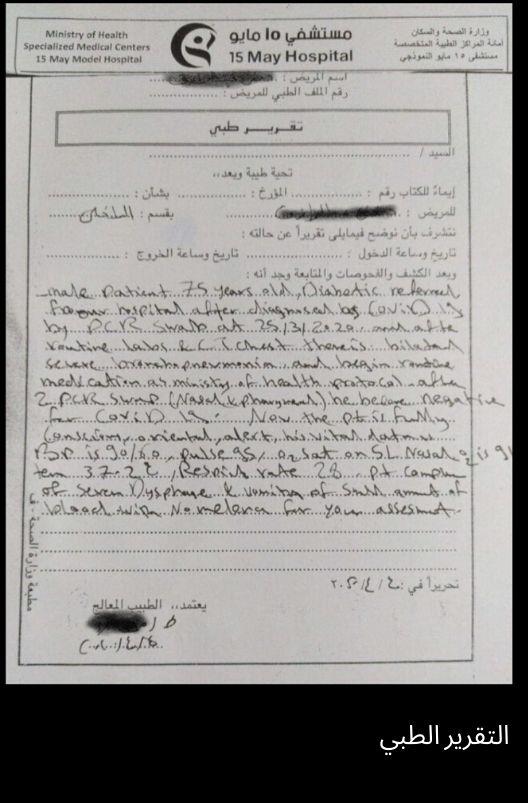 Ministry of Health
Specialized Medical Centers
15 May Model Hospital
مستشفي ١٥ مايو
15 May Hospital
وزارة الصحة والسكان
أمانة المراكز الطبية المتخصصة
مستشفى ١٥ مايو النموذجي
اسم المريض :
رقم الملف الطبي للمريض :
تقرير طبي
السيد /
تحية طيبة وبعد،،
إيماءً للكتاب رقم : المؤرخ : بشأن :
للمريض : بقسم :
نتشرف بأن نوضح فيمايلى تقريراً عن حالته :
تاريخ وساعة الدخول : تاريخ وساعة الخروج :
وبعد الكشف والفحوصات والمتابعة وجد أنه :
male patient 75 years old, Diabetic referred
hospital after diagnosed by Covid 19
by P.C.R Swab at 25/3/2020 and afte
routine labs & C.T. Chest there is bilatral
severe bronchopneumonia and begin routine
medication as ministry of health protocol after
2 PCR Swap (Nasal & pharyngeal) he become negative
for Covid 19. Now the pt is fully
alert, his vital
BP is 90/60 pulse 95 O2 sat on 5L Nasal O2 is 91
tem 37.2 C, rate 28 pt
of Severe & vomiting of Small amount of
blood with No melena for your
تحريراً في :
يعتمد،، الطبيب المعالج
مطبعة وزارة الصحة - ف
التقرير الطبي